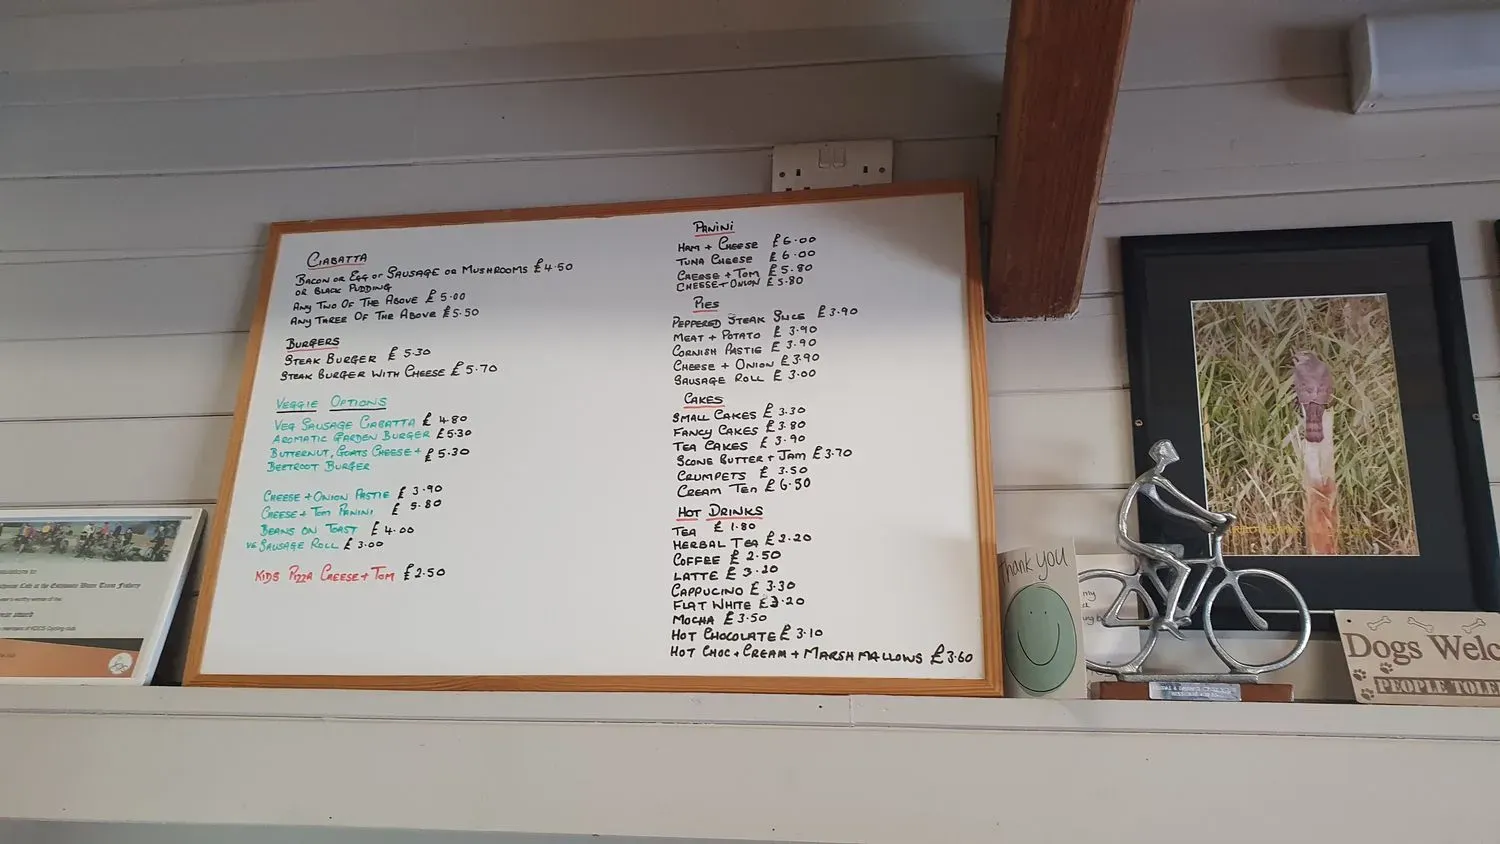 CIABATTA
BACON OR EGG OR SAUSAGE OR MUSHROOMS £4.50
OR BLACK PUDDING
ANY TWO OF THE ABOVE £5.00
ANY THREE OF THE ABOVE £5.50
BURGERS
STEAK BURGER £5.30
STEAK BURGER WITH CHEESE £5.70
VEGGIE OPTIONS
VEG SAUSAGE CIABATTA £4.80
AROMATIC GARDEN BURGER £5.30
BUTTERNUT, GOATS CHEESE + £5.30
BEETROOT BURGER
CHEESE + ONION PASTIE £3.90
CHEESE + TOM PANINI £5.80
BEANS ON TOAST £4.00
VE SAUSAGE ROLL £3.00
KIDS PIZZA CHEESE + TOM £2.50
PANINI
HAM + CHEESE £6.00
TUNA CHEESE £6.00
CHEESE + TOM £5.80
CHEESE + ONION £5.80
PIES
PEPPERED STEAK SLICE £3.90
MEAT + POTATO £3.90
CORNISH PASTIE £3.90
CHEESE + ONION £3.90
SAUSAGE ROLL £3.00
CAKES
SMALL CAKES £3.30
FANCY CAKES £3.80
TEA CAKES £3.90
SCONE BUTTER + JAM £3.70
CRUMPETS £3.50
CREAM TEA £6.50
HOT DRINKS
TEA £1.80
HERBAL TEA £2.20
COFFEE £2.50
LATTE £3.20
CAPPUCINO £3.30
FLAT WHITE £3.20
MOCHA £3.50
HOT CHOCOLATE £3.10
HOT CHOC + CREAM + MARSHMALLOWS £3.60
Thank you
my
Dogs Welc
PEOPLE TOLE